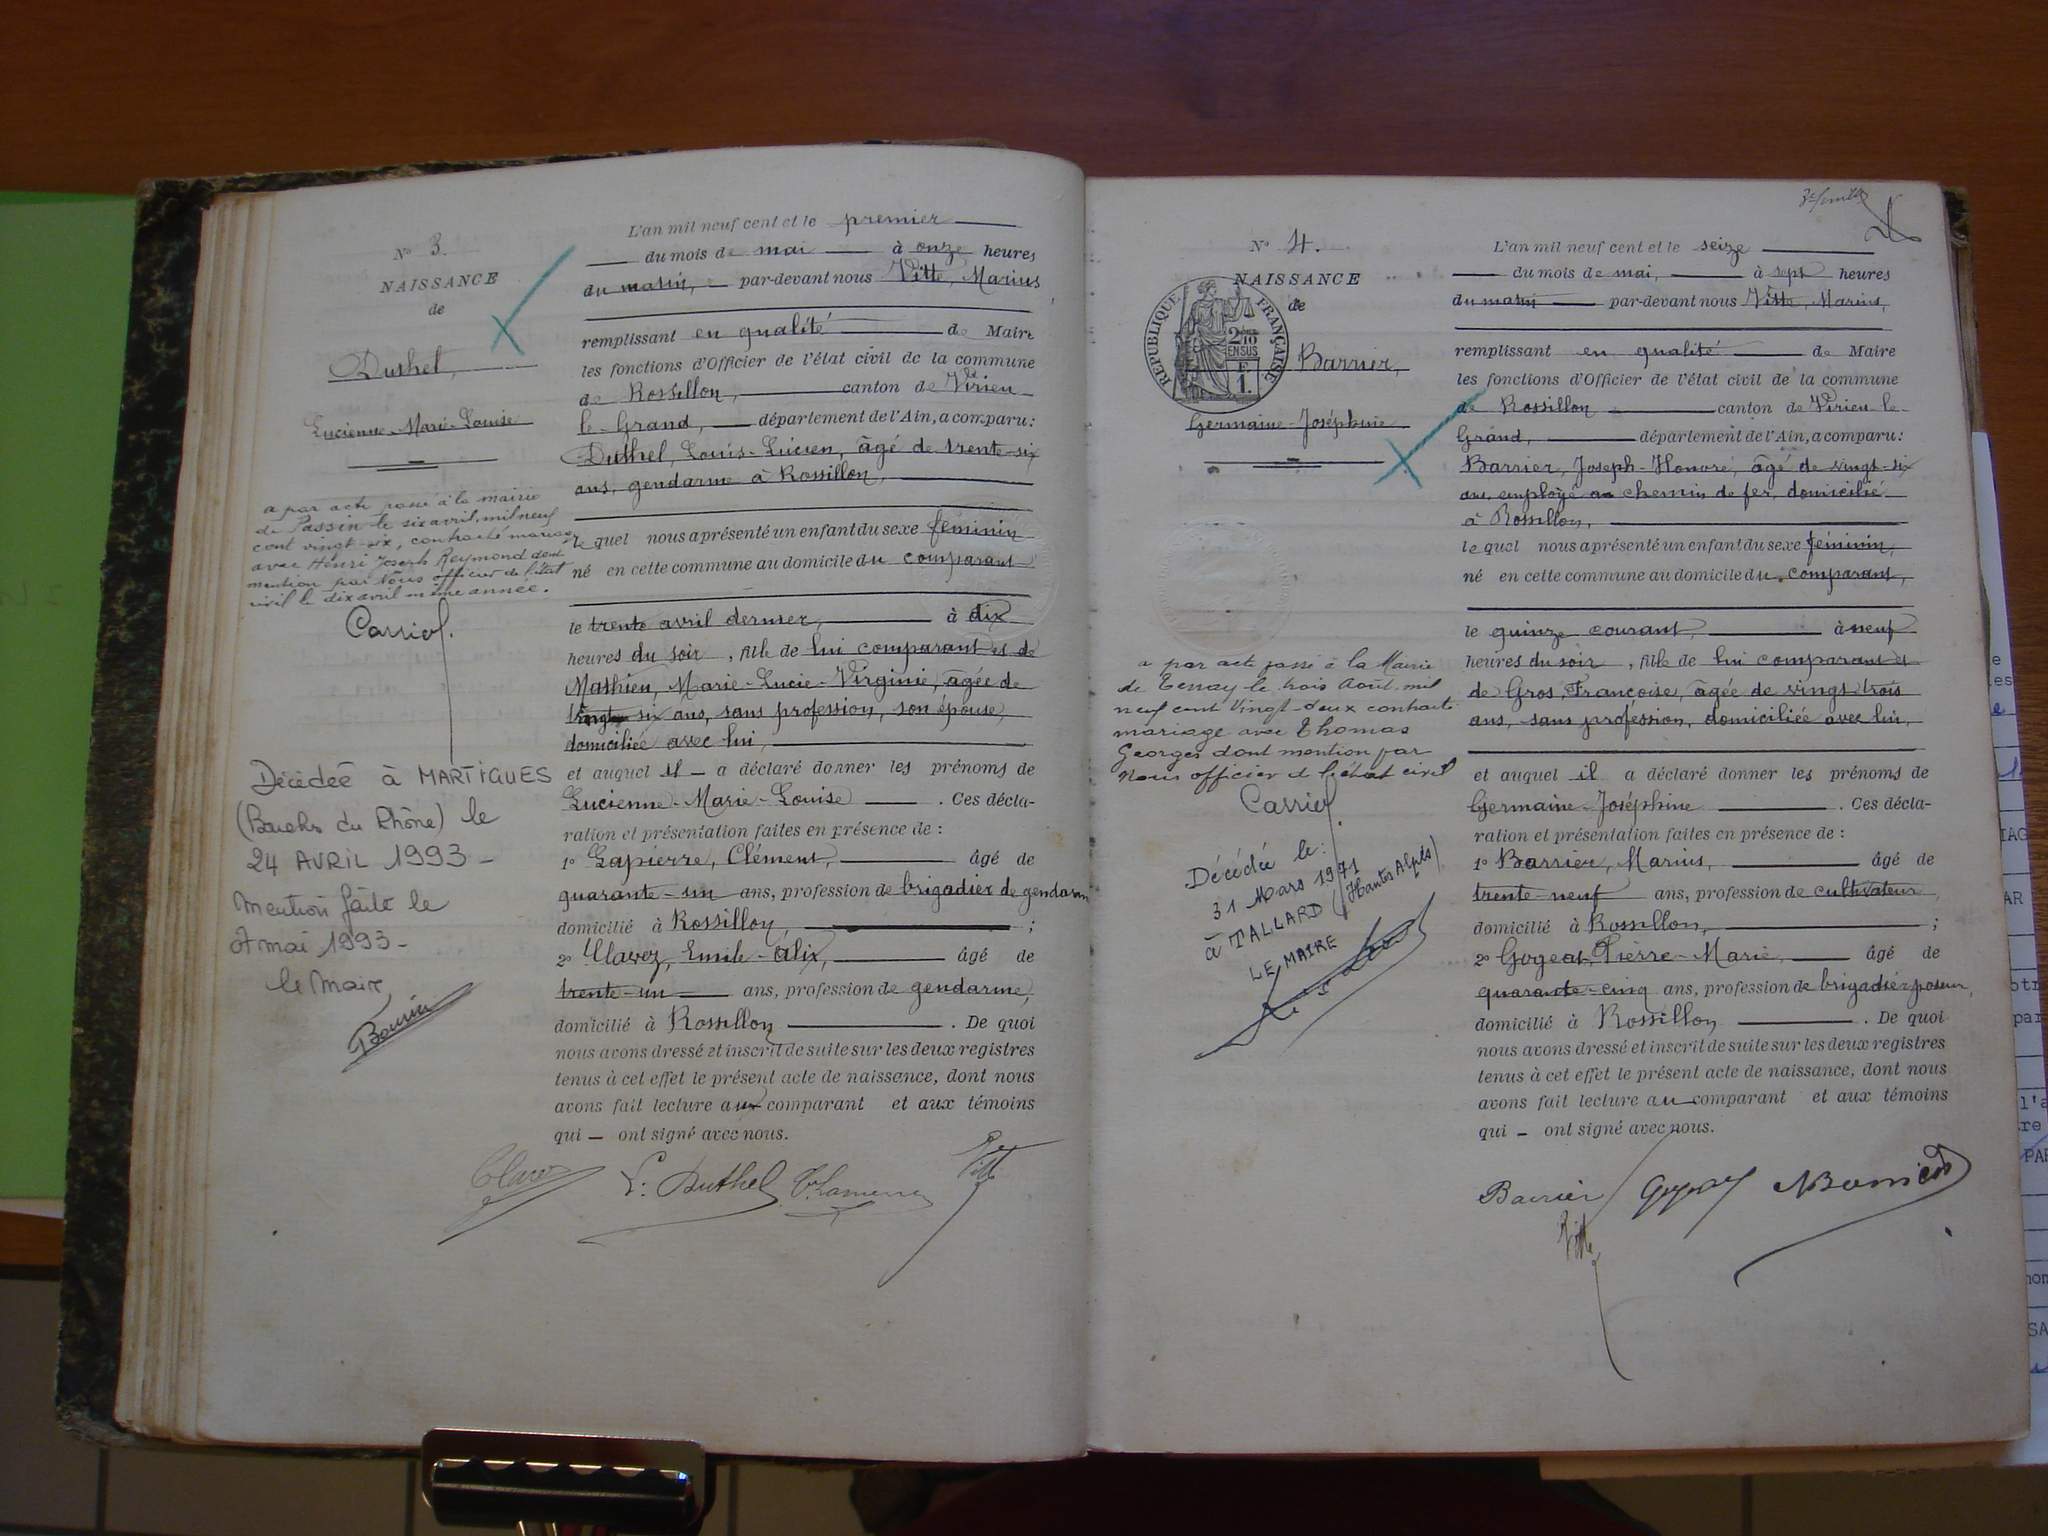 N° 3.
NAISSANCE
de
Duthel,
Lucienne-Marie-Louise
a par acte passé à la mairie
de Passin le six avril, mil neuf
cent vingt-six, contracté mariage
avec Henri Joseph Reymond dont
mention par Nous officier de l'état
civil le dix avril même année.
Carriol.
Décédée à MARTIGUES
(Bouches du Rhône) le
24 AVRIL 1993 -
Mention faite le
7 mai 1993 -
le Maire,
L'an mil neuf cent et le premier
du mois de mai à onze heures
du matin, par-devant nous Vitte, Marius,
remplissant en qualité de Maire
les fonctions d'Officier de l'état civil de la commune
de Rossillon, canton de Virieu
le-Grand, département de l'Ain, a comparu:
Duthel, Louis-Lucien, âgé de trente-six
ans, gendarme à Rossillon,
le quel nous a présenté un enfant du sexe féminin
né en cette commune au domicile du comparant
le trente avril dernier, à dix
heures du soir, fille de lui comparant et de
Mathieu, Marie-Lucie-Virginie, âgée de
vingt six ans, sans profession, son épouse,
domiciliée avec lui,
et auquel il a déclaré donner les prénoms de
Lucienne-Marie-Louise . Ces décla-
ration et présentation faites en présence de :
1° Lapierre, Clément, âgé de
quarante-un ans, profession de brigadier de gendarm
domicilié à Rossillon, ;
2° Clavez, Emile-Alix, âgé de
trente-un ans, profession de gendarme,
domicilié à Rossillon . De quoi
nous avons dressé et inscrit de suite sur les deux registres
tenus à cet effet le présent acte de naissance, dont nous
avons fait lecture au comparant et aux témoins
qui - ont signé avec nous.
L. Duthel
Vitte
N° 4.
NAISSANCE
de
REPUBLIQUE FRANÇAISE
2/10
EN SUS
F
1.
Barrier,
Germaine-Joséphine
a par acte passé à la Mairie
de Tenay le trois Août, mil
neuf cent vingt-deux contracté
mariage avec Thomas
Georges dont mention par
Nous officier de l'état civil
Carriol.
Décédée le:
31 Mars 1971
à TALLARD (Hautes Alpes)
LE MAIRE
L'an mil neuf cent et le seize
du mois de mai, à sept heures
du matin par-devant nous Vitte, Marius,
remplissant en qualité de Maire
les fonctions d'Officier de l'état civil de la commune
de Rossillon canton de Virieu-le-
Grand, département de l'Ain, a comparu:
Barrier, Joseph-Honoré, âgé de vingt-six
ans, employé au chemin de fer, domicilié
à Rossillon,
le quel nous a présenté un enfant du sexe féminin,
né en cette commune au domicile du comparant,
le quinze courant, à neuf
heures du soir, fille de lui comparant et
de Gros, Françoise, âgée de vingt-trois
ans, sans profession, domiciliée avec lui,
et auquel il a déclaré donner les prénoms de
Germaine-Joséphine . Ces décla-
ration et présentation faites en présence de :
1° Barrier, Marius, âgé de
trente-neuf ans, profession de cultivateur,
domicilié à Rossillon, ;
2° Gogeat, Pierre-Marie, âgé de
quarante-cinq ans, profession de brigadier poseur,
domicilié à Rossillon . De quoi
nous avons dressé et inscrit de suite sur les deux registres
tenus à cet effet le présent acte de naissance, dont nous
avons fait lecture au comparant et aux témoins
qui - ont signé avec nous.
Barrier
Vitte